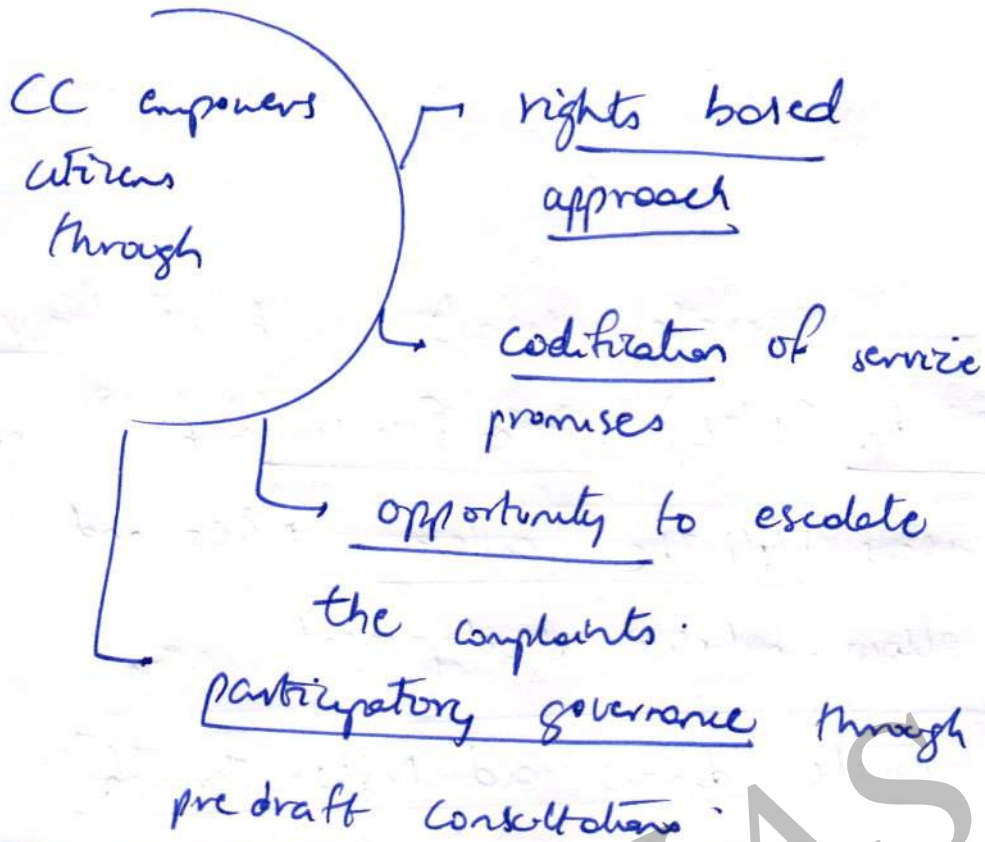 CC empowers
citizens
through
rights based
approach
codification of service
promises
opportunity to escalate
the complaints.
participatory governance through
predraft consultations.